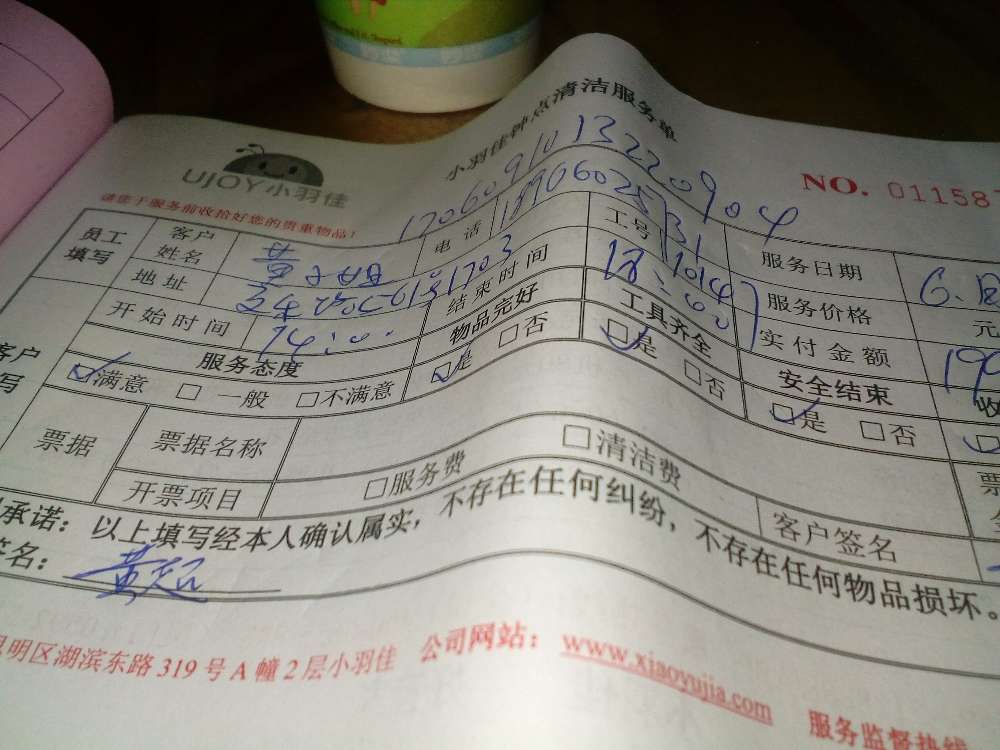 小羽佳钟点清洁服务单
UJOY小羽佳
NO. 011587
请您于服务前收拾好您的贵重物品！
1706091013220904
员工填写 客户姓名 黄小姐 电话 工号 服务日期
地址 服务价格 元
开始时间 14:00 结束时间 18:00 实付金额
服务态度 物品完好 工具齐全 安全结束 收
满意 一般 不满意 是 否 是 否 是 否
票据 票据名称
开票项目 服务费 清洁费 客户签名
承诺：以上填写经本人确认属实，不存在任何纠纷，不存在任何物品损坏。
签名：
明区湖滨东路 319 号 A 幢 2 层小羽佳 公司网站：www.xiaoyujia.com 服务监督热线